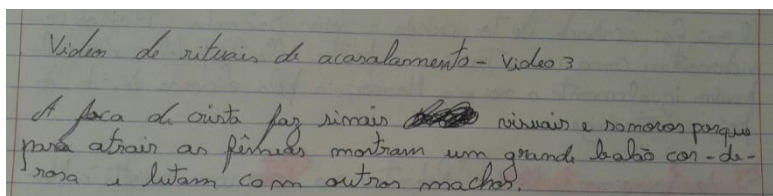 Videos de rituais de acasalamento - Video 3
A foca de crista faz sinais visuais e sonoros porque
para atrair as fêmeas mostram um grande balão cor-de-
rosa e lutam com outros machos.